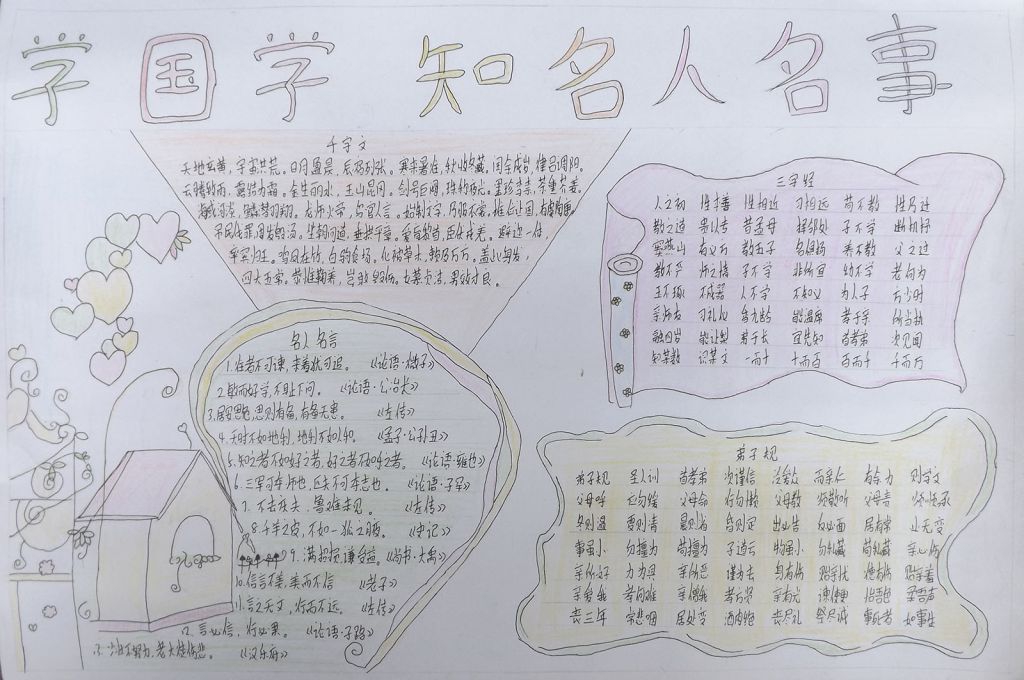 学国学 知名人名事
千字文
天地玄黄，宇宙洪荒。日月盈昃，辰宿列张。寒来暑往，秋收冬藏。闰余成岁，律吕调阳。
云腾致雨，露结为霜。金生丽水，玉出昆冈。剑号巨阙，珠称夜光。果珍李柰，菜重芥姜。
海咸河淡，鳞潜羽翔。龙师火帝，鸟官人皇。始制文字，乃服衣裳。推位让国，有虞陶唐。
吊民伐罪，周发殷汤。坐朝问道，垂拱平章。爱育黎首，臣伏戎羌。遐迩一体，
率宾归王。鸣凤在竹，白驹食场。化被草木，赖及万方。盖此身发，
四大五常。恭惟鞠养，岂敢毁伤。女慕贞洁，男效才良。
名人名言
1.往者不可谏，来者犹可追。《论语·微子》
2.敏而好学，不耻下问。《论语·公冶长》
3.居安思危，思则有备，有备无患。《左传》
4.天时不如地利，地利不如人和。《孟子·公孙丑》
5.知之者不如好之者，好之者不如乐之者。《论语·雍也》
6.三军可夺帅也，匹夫不可夺志也。《论语·子罕》
7.不去庆父，鲁难未已。《左传》
8.千羊之皮，不如一狐之腋。《史记》
9.满招损，谦受益。《尚书·大禹》
10.信言不美，美而不信 《老子》
11.言之无文，行而不远。《左传》
12.言必信，行必果。《论语·子路》
13.少壮不努力，老大徒伤悲。《汉乐府》
三字经
人之初 性本善 性相近 习相远 苟不教 性乃迁
教之道 贵以专 昔孟母 择邻处 子不学 断机杼
窦燕山 有义方 教五子 名俱扬 养不教 父之过
教不严 师之惰 子不学 非所宜 幼不学 老何为
玉不琢 不成器 人不学 不知义 为人子 方少时
亲师友 习礼仪 香九龄 能温席 孝于亲 所当执
融四岁 能让梨 弟于长 宜先知 首孝弟 次见闻
知某数 识某文 一而十 十而百 百而千 千而万
弟子规
弟子规 圣人训 首孝弟 次谨信 泛爱众 而亲仁 有余力 则学文
父母呼 应勿缓 父母命 行勿懒 父母教 须敬听 父母责 须顺承
冬则温 夏则凊 晨则省 昏则定 出必告 反必面 居有常 业无变
事虽小 勿擅为 苟擅为 子道亏 物虽小 勿私藏 苟私藏 亲心伤
亲所好 力为具 亲所恶 谨为去 身有伤 贻亲忧 德有伤 贻亲羞
亲爱我 孝何难 亲憎我 孝方贤 亲有过 谏使更 怡吾色 柔吾声
丧三年 常悲咽 居处变 酒肉绝 丧尽礼 祭尽诚 事死者 如事生